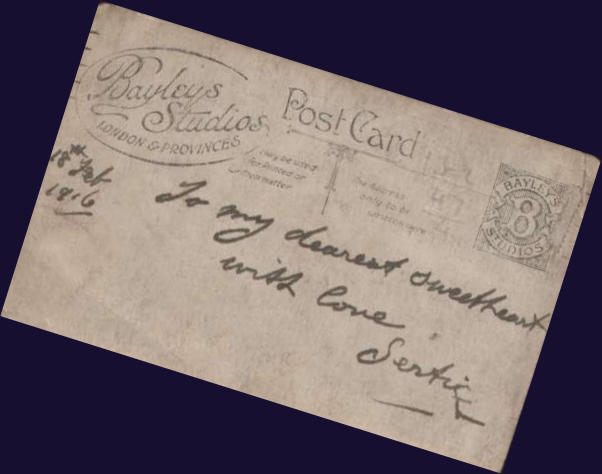 Bayley's
Studios,
LONDON & PROVINCES
Post Card
may be used
for Printed or
Written matter
The Address
only to be
written here
BAYLEY'S
8
STUDIOS
18th Feb
1916
To my dearest sweetheart
with love